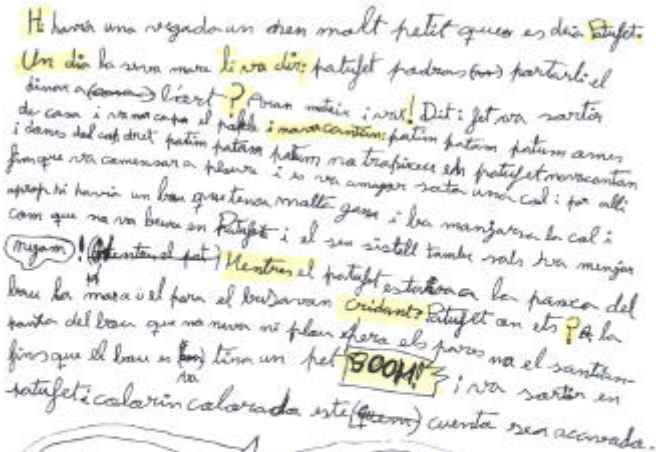 Hi havia una vegada un nen molt petit que es deia Patufet.
Un dia la seva mara li va dir: patufet podras (me) portarli el
dinar a l'ort? Aran mateix i vas! Dit i fet va sortir
de casa i va nar cap a el poble i nava cantan: patim patam patum omes
i dones del cap dret patim patam patum no trapixeu en patufet nava cantan
fins que va comensar a ploure i es va amagar sota una col i per alli
aprop hi havia un bou que tenia molta gana i ba manjarsa la col i
com que no va beura en Patufet i el seu sistell tambe sels ha menjar
nyam! (Mentres el pat) Mentres el patufet estava a la panxa del
bou la mara i el para el busavan cridant: Patufet on ets? A la
panxa del bou que no neva ni plou pero els pares no el santian
fins que el bou es va tira un pet BOOM! i va sortir en
patufet i colorin colorado este cuento sea acavado.